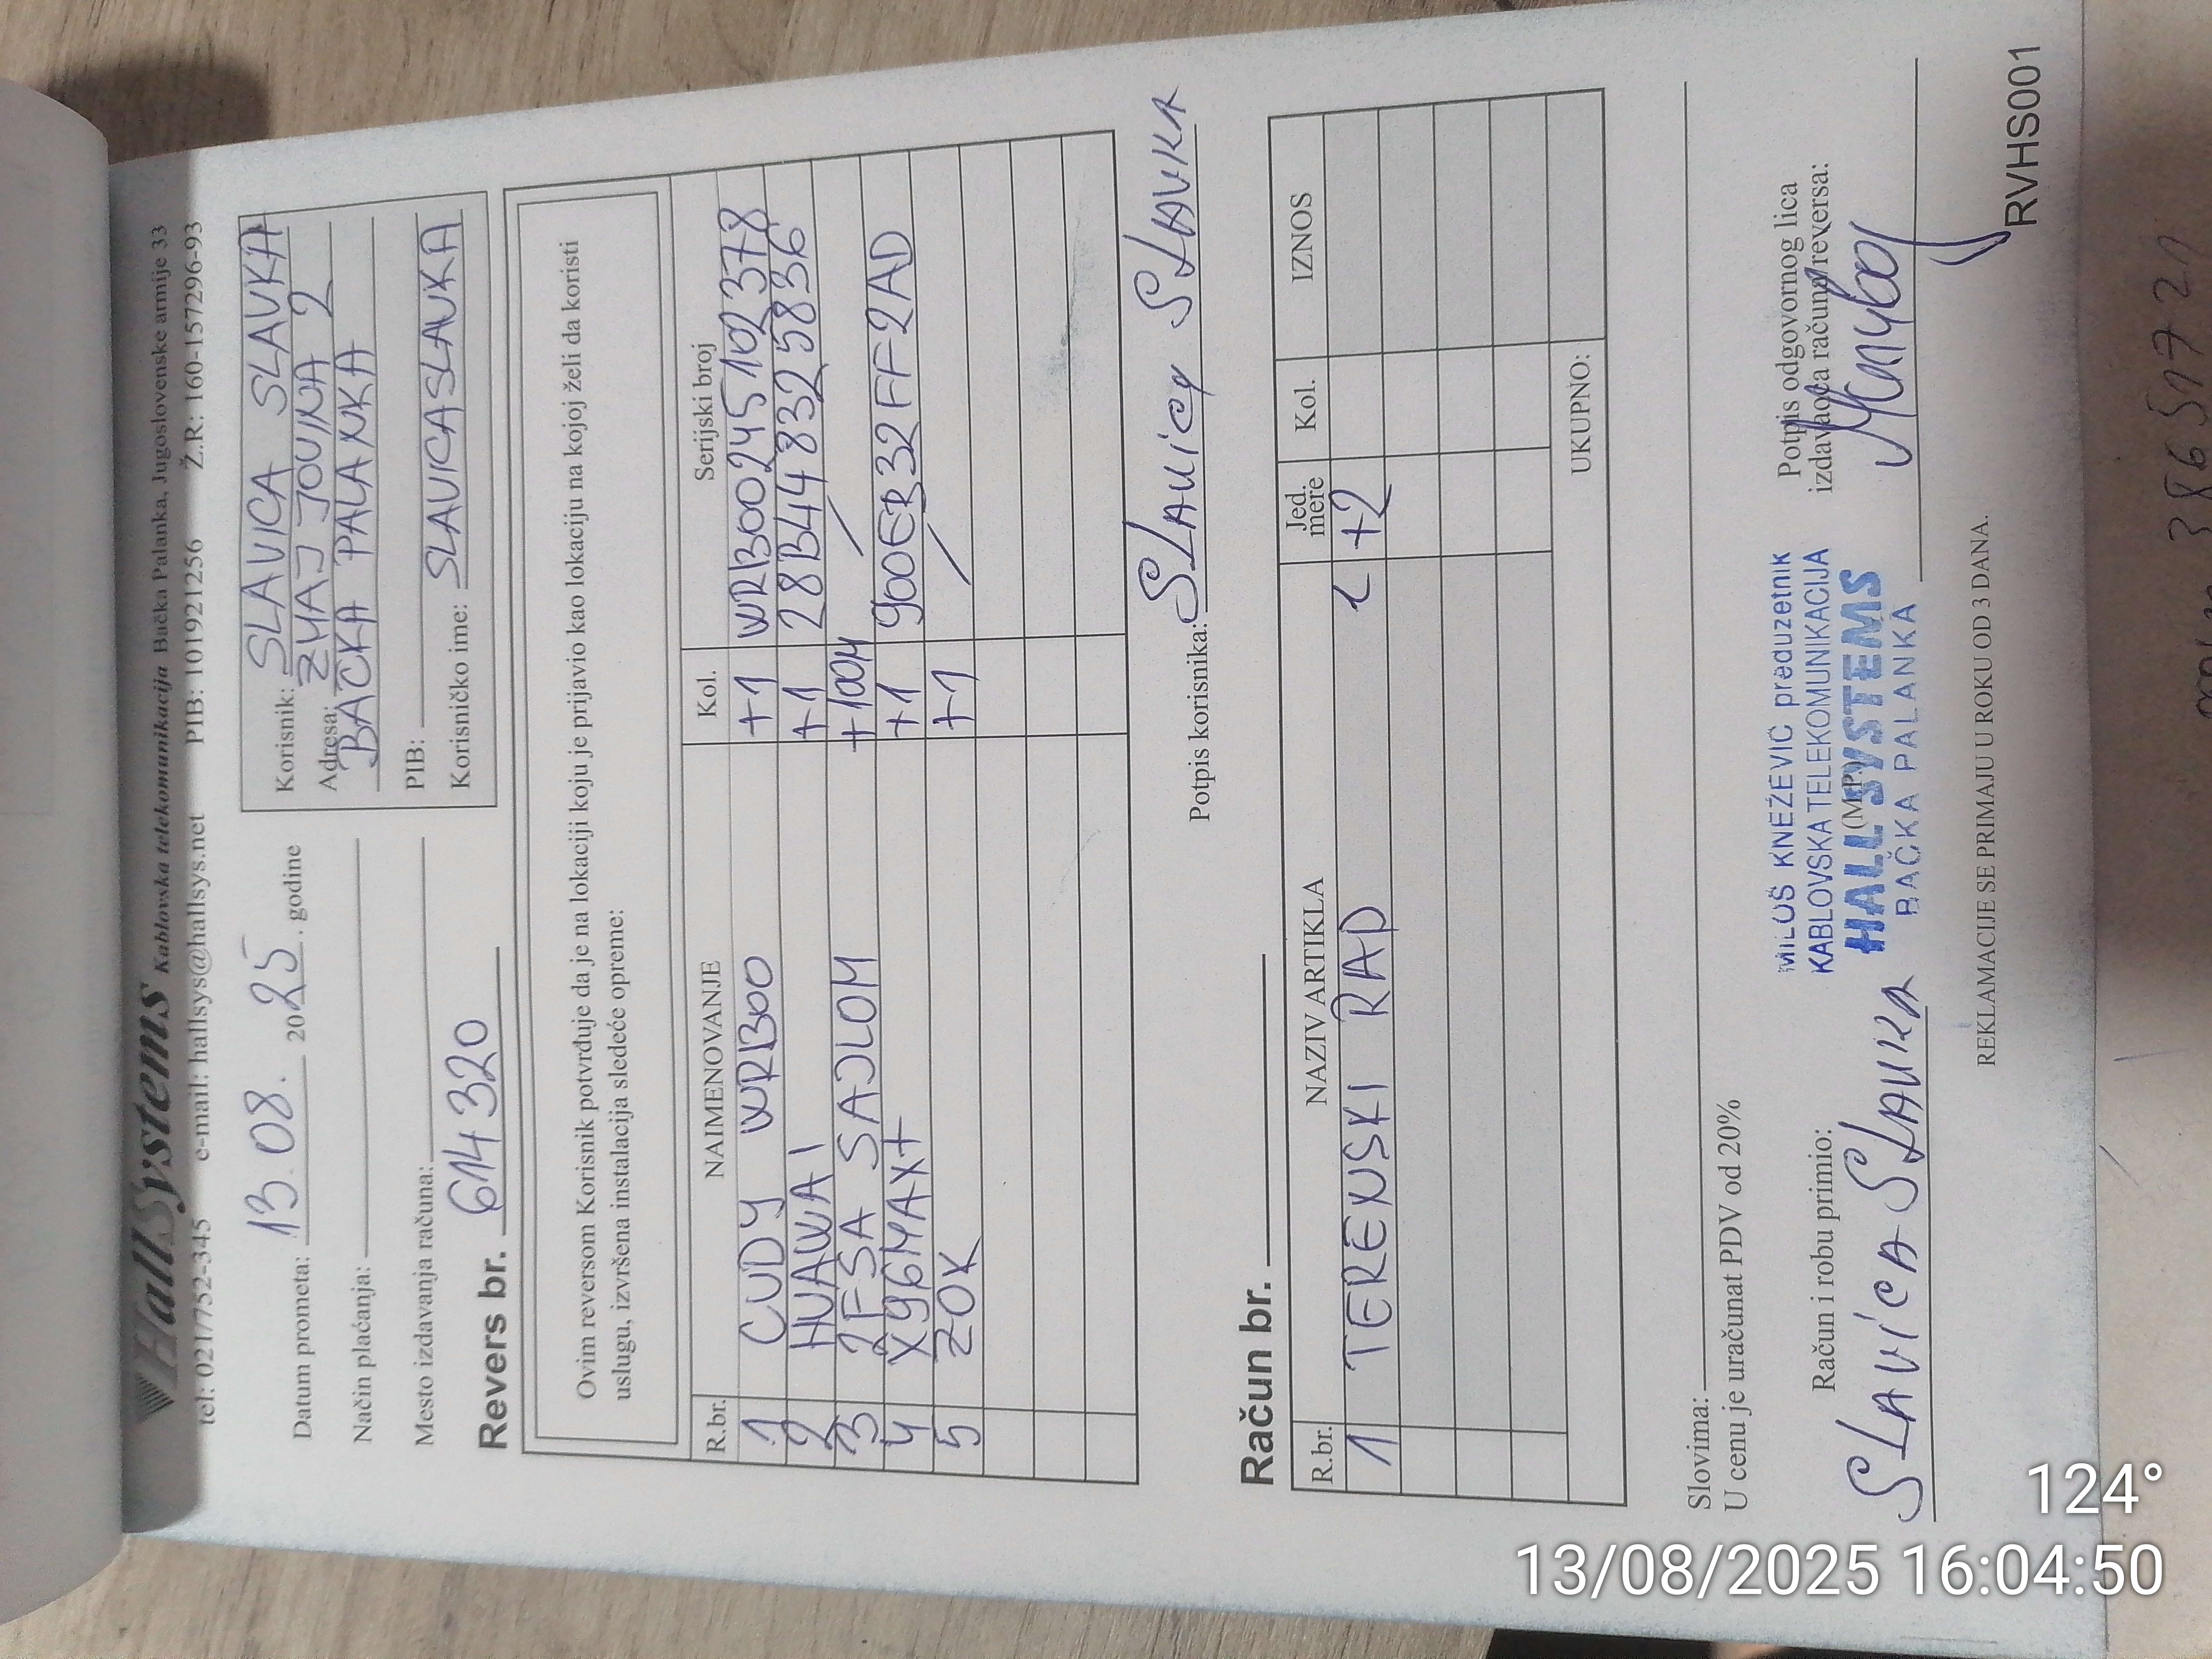 HallSystems Kablovska telekomunikacija Bačka Palanka, Jugoslovenske armije 33
tel: 021/752-345 e-mail: hallsys@hallsys.net PIB: 101921256 Ž.R.: 160-157296-93
Datum prometa: 13.08. 2025. godine
Način plaćanja:
Mesto izdavanja računa:
Revers br. 614320
Korisnik: SLAVICA SLAVKA
Adresa: ZMAJ JOVINA 2
BAČKA PALANKA
PIB:
Korisničko ime: SLAVICASLAVKA
Ovim reversom Korisnik potvrđuje da je na lokaciji koju je prijavio kao lokaciju na kojoj želi da koristi
uslugu, izvršena instalacija sledeće opreme:
R.br. NAIMENOVANJE Kol. Serijski broj
1 CUDY WR300 +1 WR300245102378
2 HUAWAI +1 28B448325836
3 2FSA SAJLOM +100M /
4 X96MAX+ +1 900ER32FF2AD
5 ZOK +1 /
Potpis korisnika: Slavica Slavka
Račun br.
R.br. NAZIV ARTIKLA Jed. mere Kol. IZNOS
1 TERENSKI RAD +2
UKUPNO:
Slovima:
U cenu je uračunat PDV od 20%
Račun i robu primio:
Slavica Slavka
MILOŠ KNEŽEVIĆ preduzetnik
KABLOVSKA TELEKOMUNIKACIJA
(M.P.)
HALL SYSTEMS
BAČKA PALANKA
Potpis odgovornog lica
izdavaoca računa/reversa:
REKLAMACIJE SE PRIMAJU U ROKU OD 3 DANA.
RVHS001
124°
13/08/2025 16:04:50